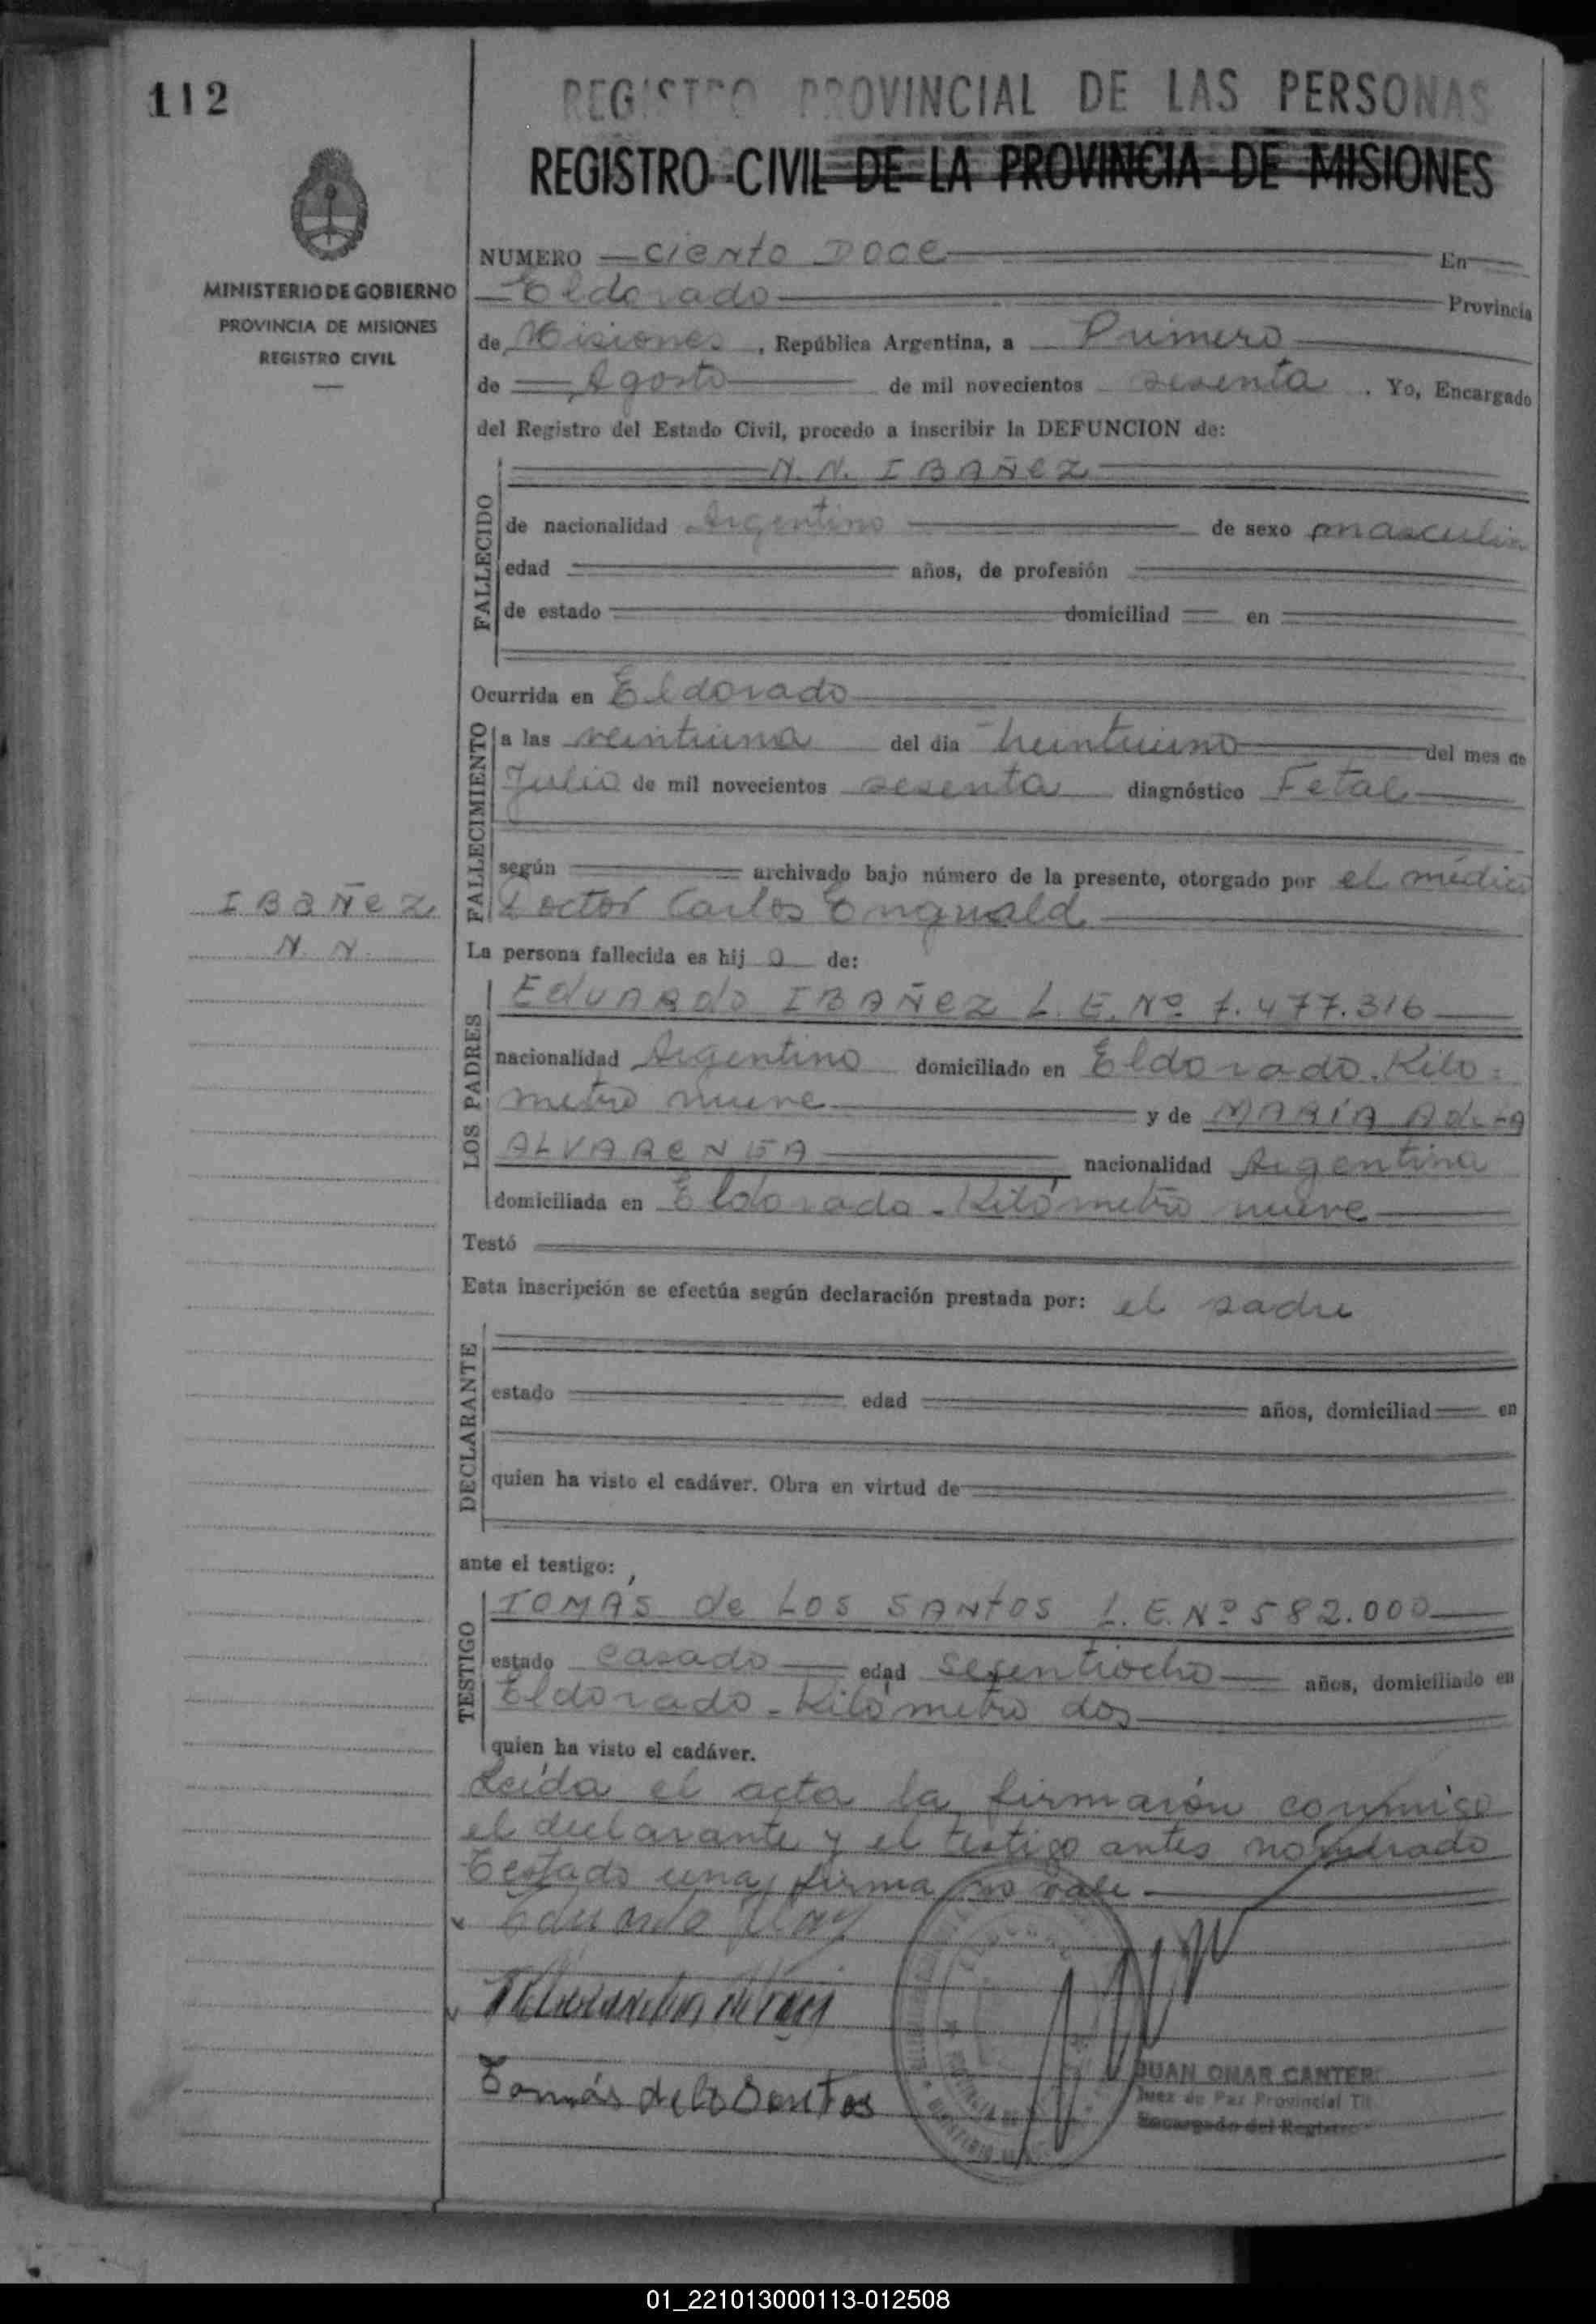 112
REGISTRO PROVINCIAL DE LAS PERSONAS
REGISTRO CIVIL DE LA PROVINCIA DE MISIONES
MINISTERIO DE GOBIERNO
PROVINCIA DE MISIONES
REGISTRO CIVIL
NUMERO ciento DOCE En
Eldorado Provincia
de Misiones, República Argentina, a Primero
de Agosto de mil novecientos sesenta. Yo, Encargado
del Registro del Estado Civil, procedo a inscribir la DEFUNCION de:
N. N. IBAÑEZ
FALLECIDO
de nacionalidad Argentino de sexo masculin
edad años, de profesión
de estado domiciliad en
Ocurrida en Eldorado
FALLECIMIENTO
a las veintiuna del dia treintiuno del mes de
Julio de mil novecientos sesenta diagnóstico Fetal
según archivado bajo número de la presente, otorgado por el médico
Doctor Carlos
IBAÑEZ
N. N.
La persona fallecida es hij o de:
LOS PADRES
EDUARDO IBAÑEZ L. E. Nº 7.477.316
nacionalidad Argentino domiciliado en Eldorado. Kiló-
metro nueve y de MARÍA
ALVARENGA nacionalidad Argentina
domiciliada en Eldorado - Kilómetro nueve
Testó
Esta inscripción se efectúa según declaración prestada por: el padre
DECLARANTE
estado edad años, domiciliad en
quien ha visto el cadáver. Obra en virtud de
ante el testigo:
TESTIGO
TOMÁS de LOS SANTOS L. E. Nº 582.000
estado casado edad sesentiocho años, domiciliado en
Eldorado - Kilómetro dos
quien ha visto el cadáver.
Leída el acta la firmarón conmigo
el declarante y el testigo antes nombrado
Testado una firma no vale
Eduardo
Tomás de los Santos
JUAN OMAR CANTER
Juez de Paz Provincial Tit.
Encargado del Registro
01_221013000113-012508